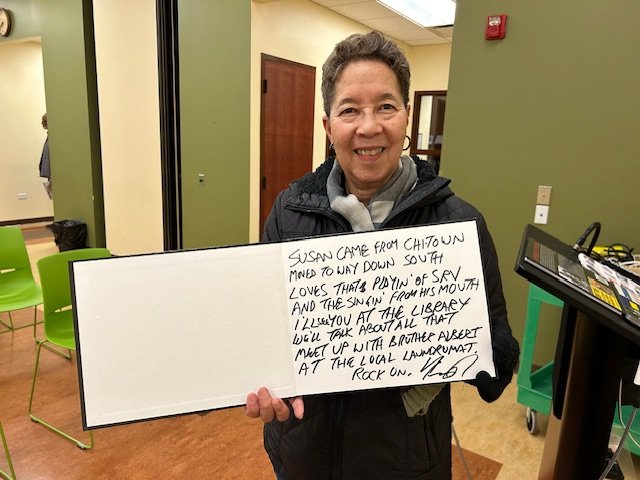 SUSAN CAME FROM CHITOWN
MNED TO WAY DOWN SOUTH
LOVES THAT PLAYIN' OF SRV
AND THE SINGIN' FROM HIS MOUTH
I'LL SEE YOU AT THE LIBRARY
WE'LL TALK ABOUT ALL THAT
MEET UP WITH BROTHER ALBERT
AT THE LOCAL LAUNDRUMAT.
ROCK ON.